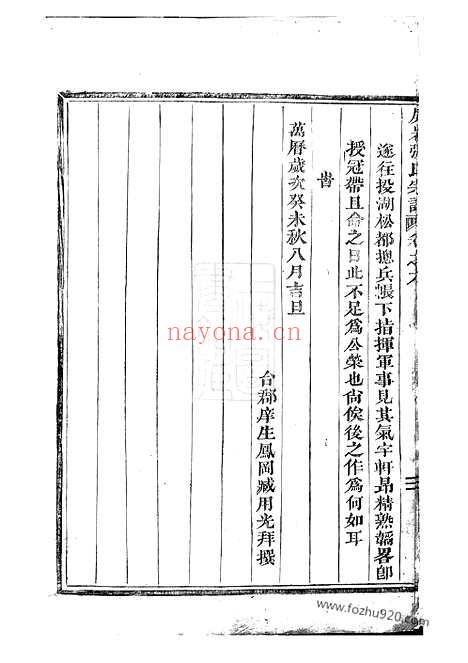 遂往投湖松都摠兵張下指揮軍事見其氣宇軒昂精熟韜畧卽
授冠帶且命之曰此不足為公榮也尙俟後之作為何如耳
旹
萬曆歲次癸未秋八月吉旦
台郡庠生鳳岡臧用光拜撰
nayona.cn
www.fozhu920.com